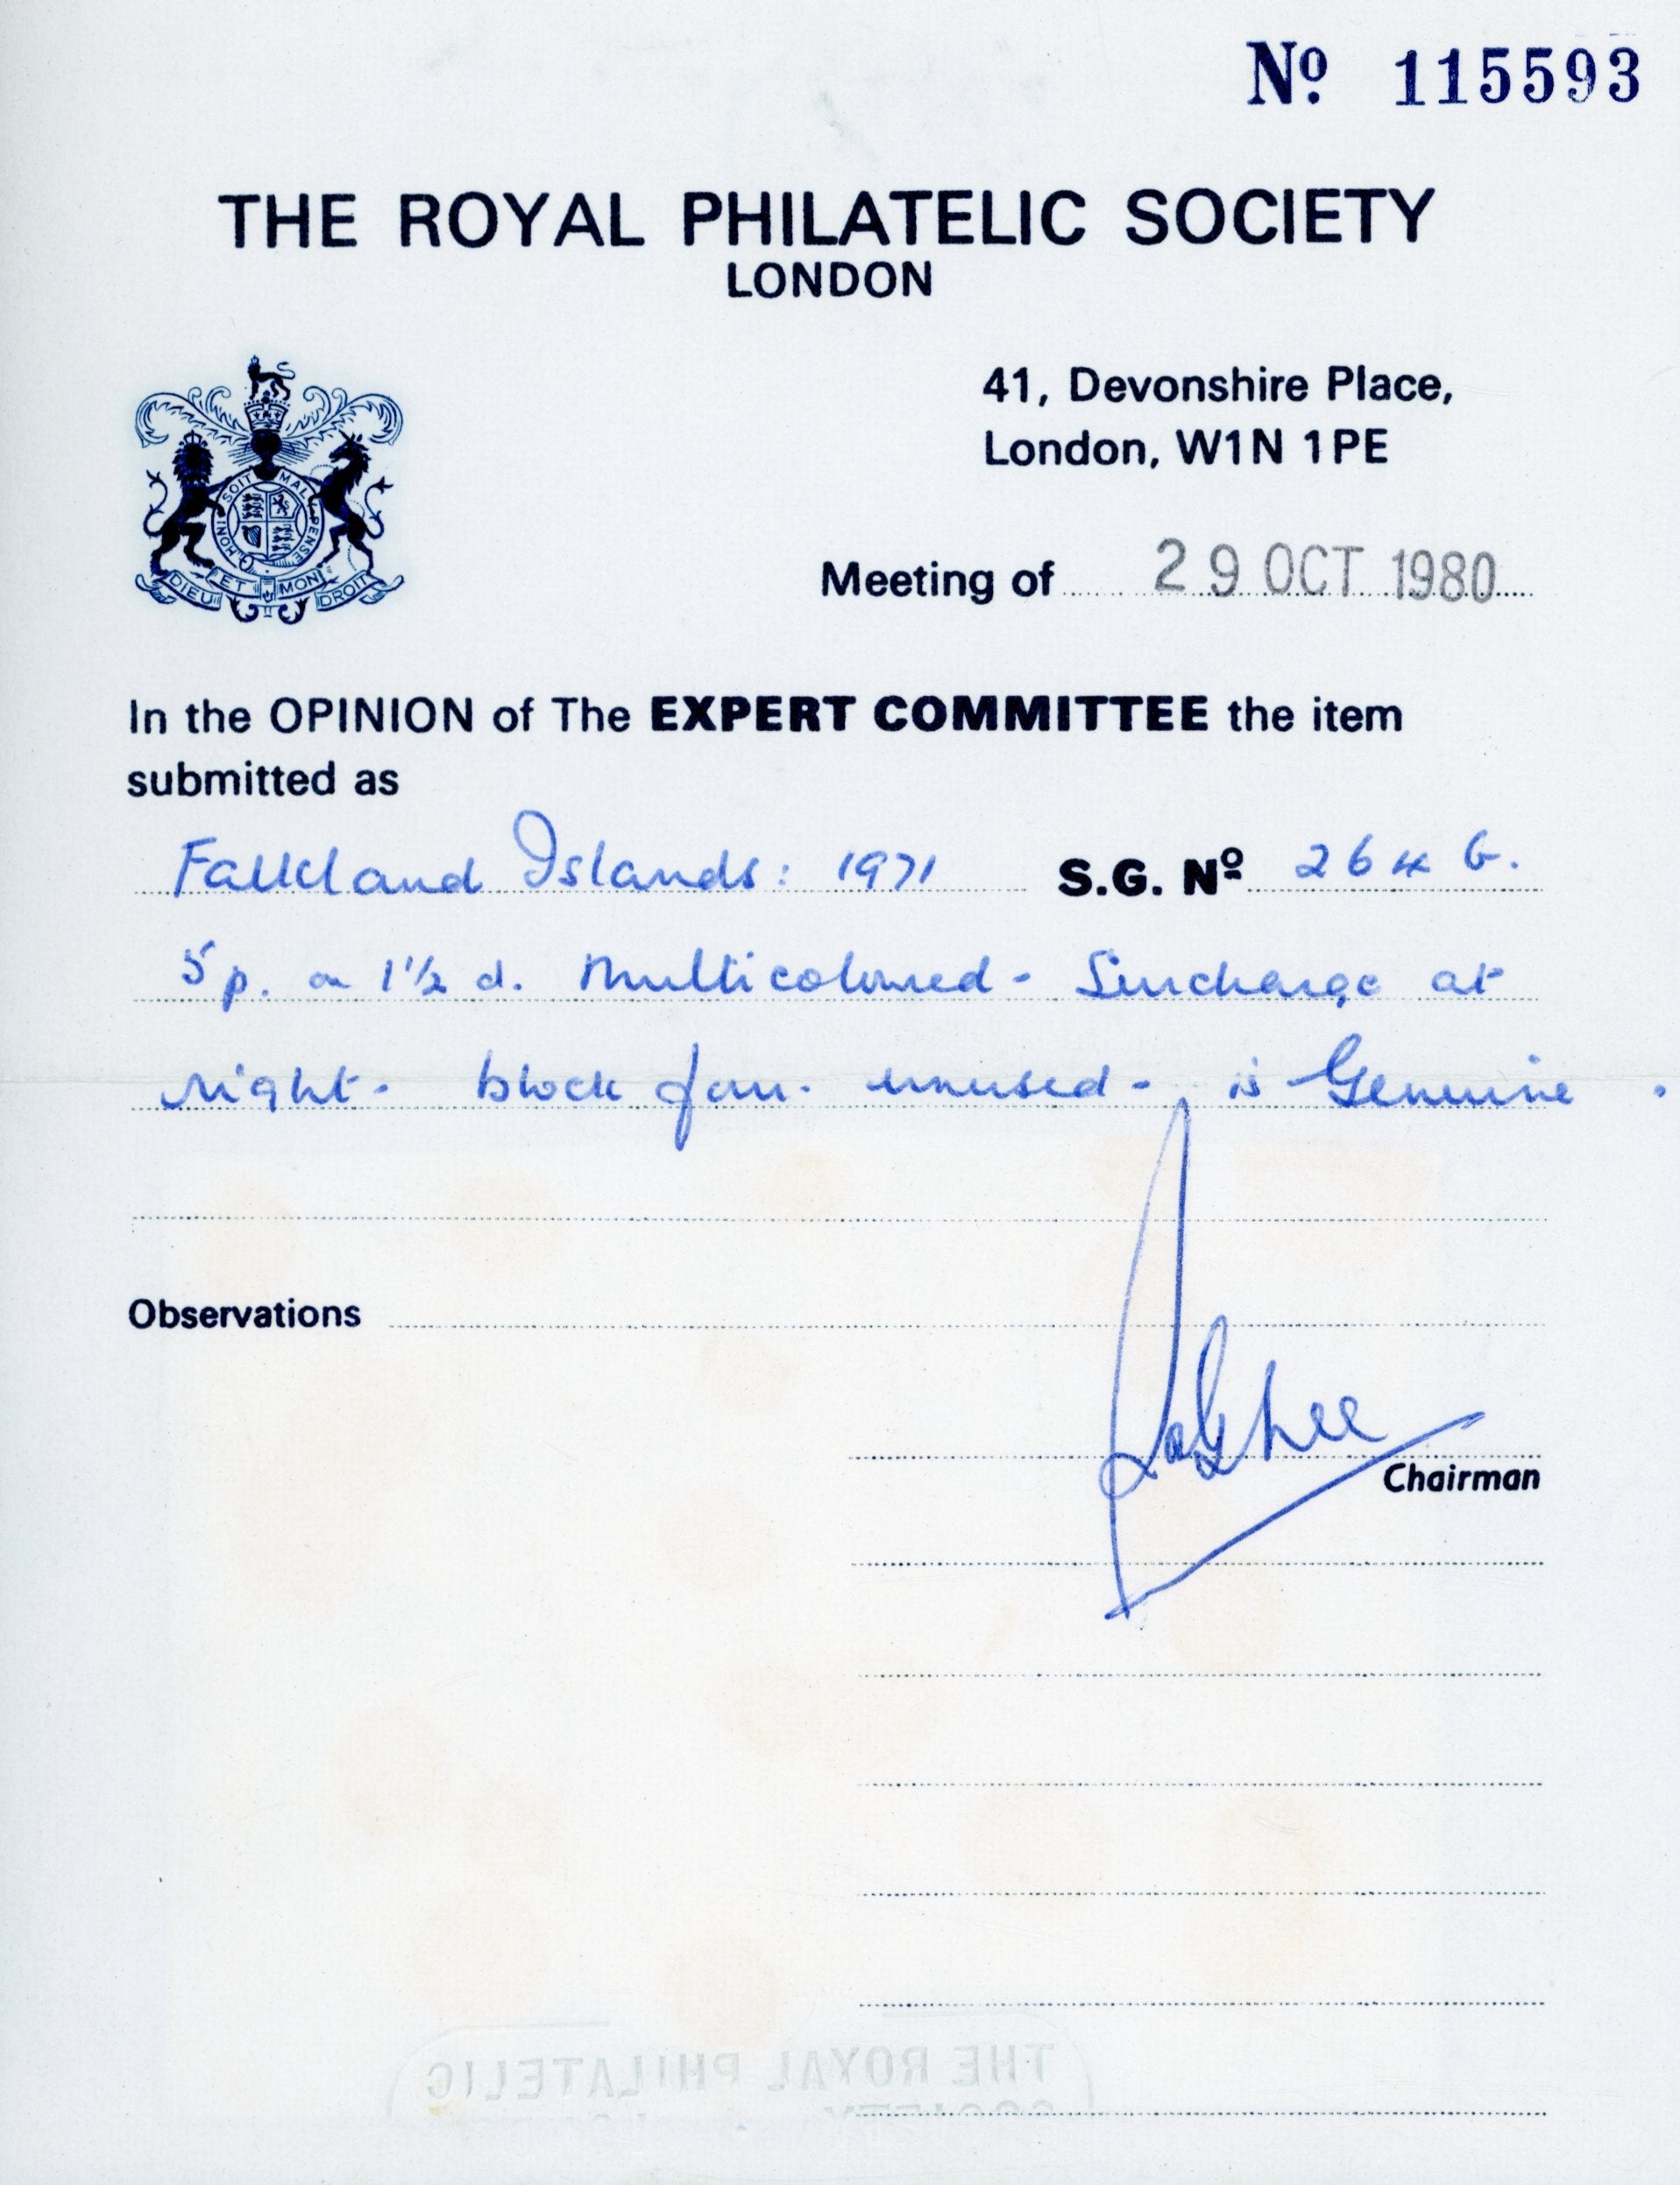 Nº 115593
THE ROYAL PHILATELIC SOCIETY
LONDON
41, Devonshire Place,
London, W1N 1PE
HONI SOIT MAL PENSE
DIEU ET MON DROIT
Meeting of 29 OCT 1980
In the OPINION of The EXPERT COMMITTEE the item
submitted as
Falkland Islands: 1971 S.G. Nº 264 b.
5p. on 1½ d. Multicoloured - Surcharge at
right - block four. unused - is Genuine.
Observations
Chairman
THE ROYAL PHILATELIC
SOCIETY